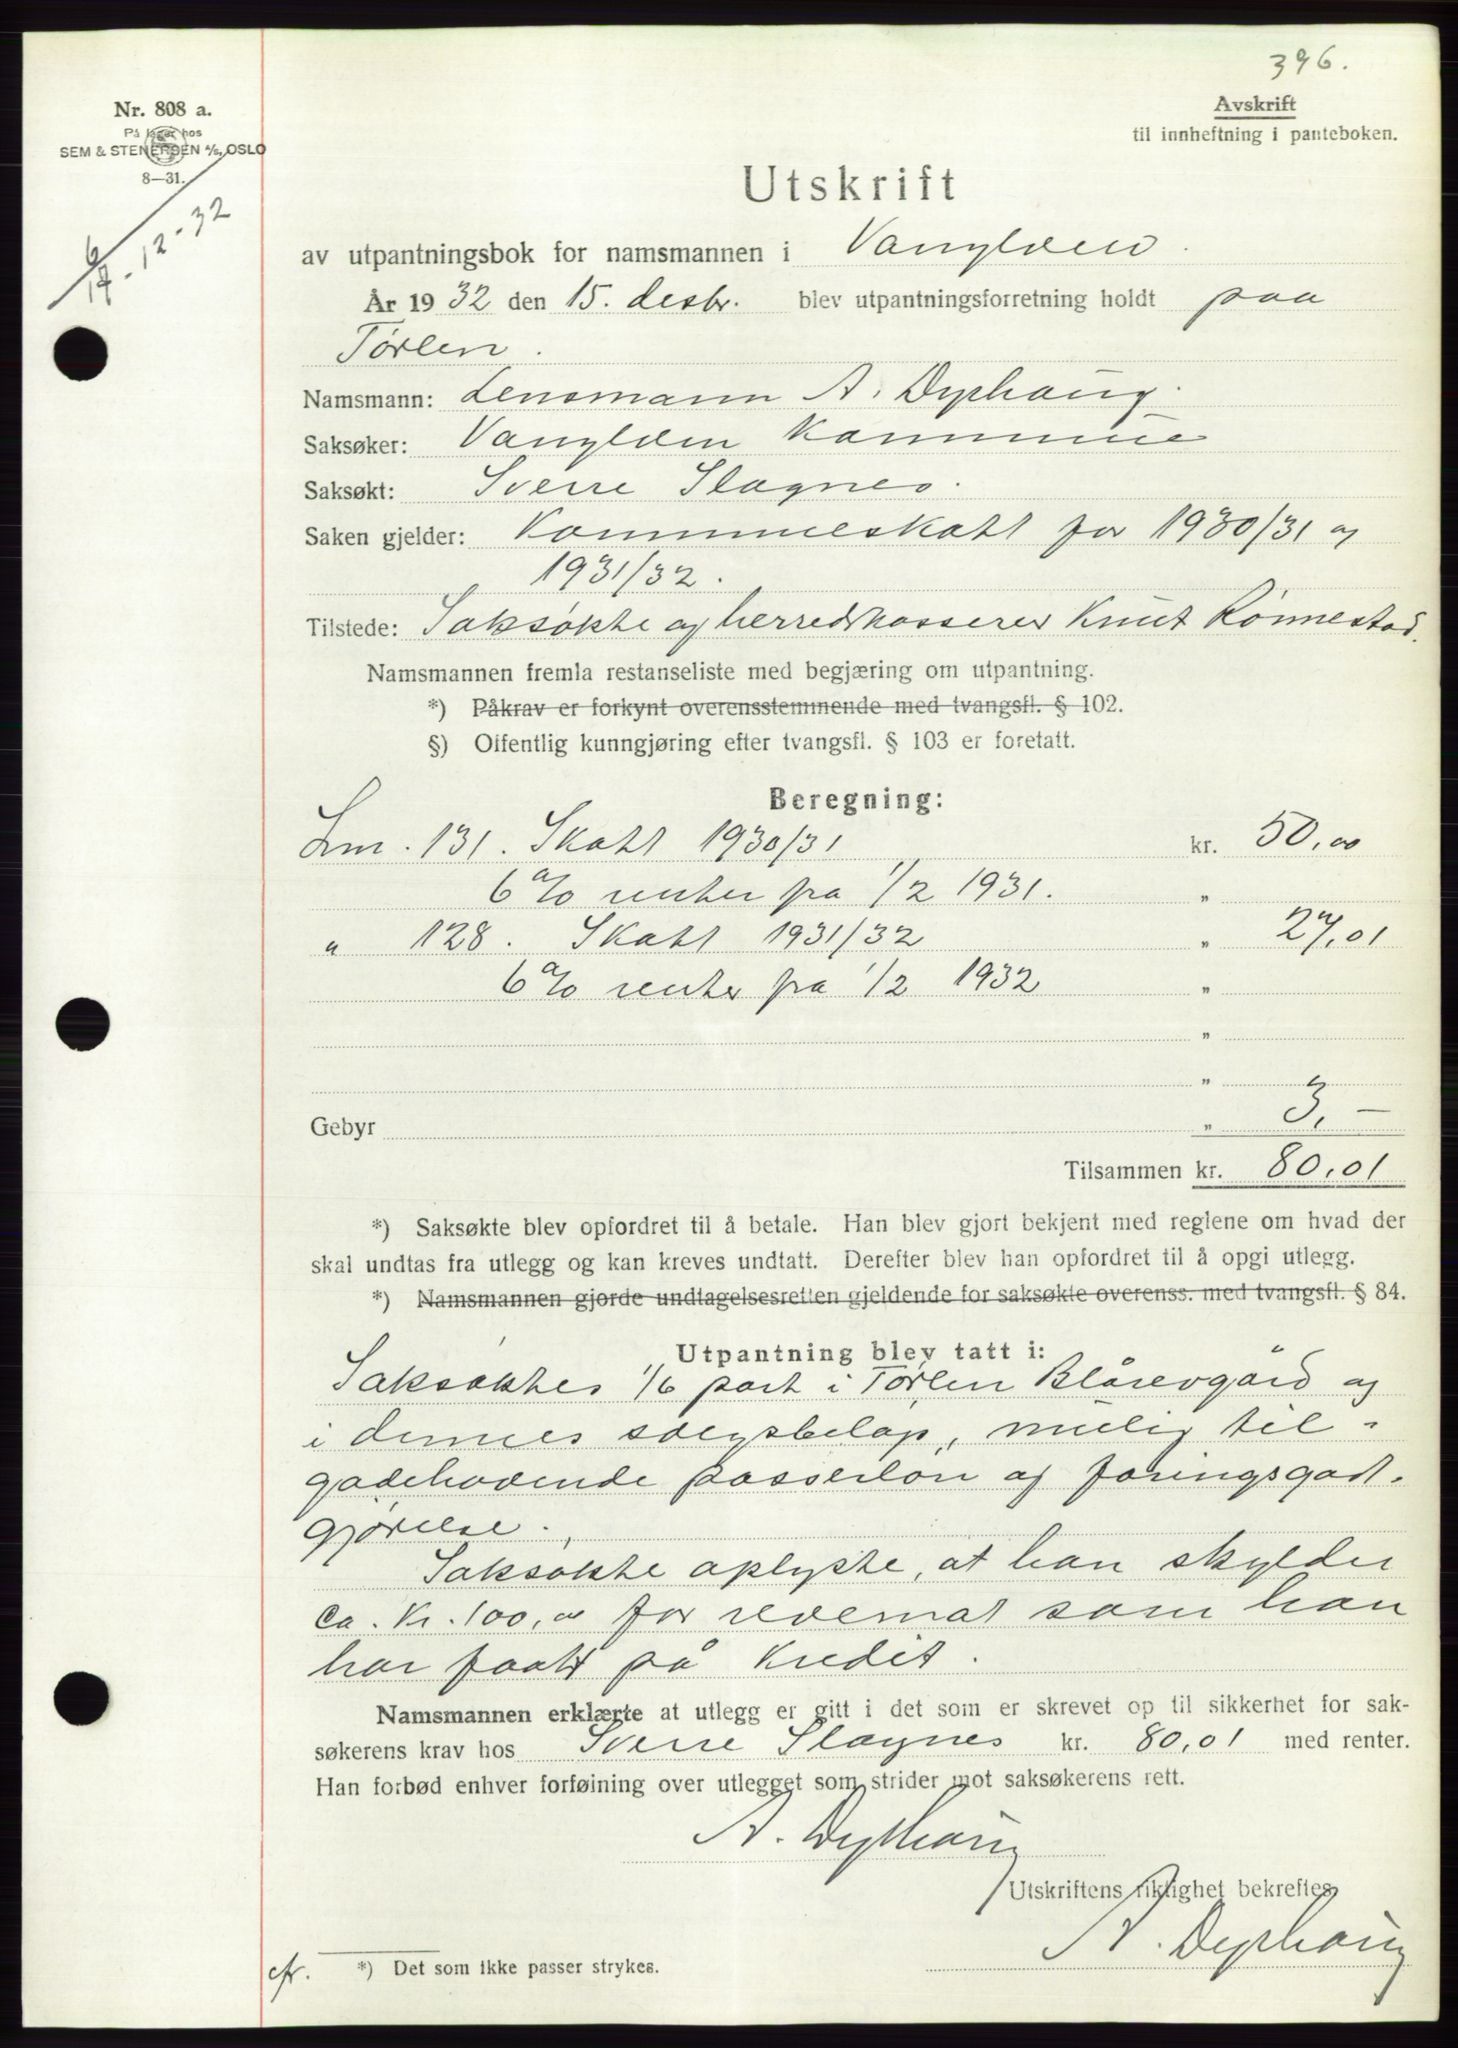 396.
Nr. 808 a.
På lager hos
SEM & STENERSEN A/S, OSLO
8—31.
6/17-12-32
Avskrift
til innheftning i panteboken.
Utskrift
av utpantningsbok for namsmannen i Vanylven.
År 1932 den 15. desbr. blev utpantningsforretning holdt paa
Tørlen.
Namsmann: Lensmann A. Dyphaug.
Saksøker: Vanylven Kommune
Saksøkt: Sverre Slagnes.
Saken gjelder: Kommuneskatt for 1930/31 og
1931/32.
Tilstede: Saksøkte og herredskasserer Knut Rønnestad.
Namsmannen fremla restanseliste med begjæring om utpantning.
*) Påkrav er forkynt overensstemmende med tvangsfl. § 102.
§) Offentlig kunngjøring efter tvangsfl. § 103 er foretatt.
Beregning:
Lnr. 131. Skatt 1930/31 kr. 50,00
6 % renter fra 1/2 1931. "
" 128. Skatt 1931/32 " 27,01
6 % renter fra 1/2 1932 "
"
"
Gebyr " 3,—
Tilsammen kr. 80,01
*) Saksøkte blev opfordret til å betale. Han blev gjort bekjent med reglene om hvad der
skal undtas fra utlegg og kan kreves undtatt. Derefter blev han opfordret til å opgi utlegg.
*) Namsmannen gjorde undtagelsesretten gjeldende for saksøkte overenss. med tvangsfl. § 84.
Utpantning blev tatt i:
Saksøktes 1/6 part i Tørlen Blårevgård og
i dennes salgsbeløp, mulig til-
godehavende passerløn og foringsgodt-
gjørelse.
Saksøkte oplyste, at han skylder
ca. Kr. 100,00 for revemat som han
har faatt på kredit.
Namsmannen erklærte at utlegg er gitt i det som er skrevet op til sikkerhet for sak-
søkerens krav hos Sverre Slagnes kr. 80,01 med renter.
Han forbød enhver forføining over utlegget som strider mot saksøkerens rett.
A. Dyphaug
Utskriftens riktighet bekreftes
A. Dyphaug
cfr. *) Det som ikke passer strykes.